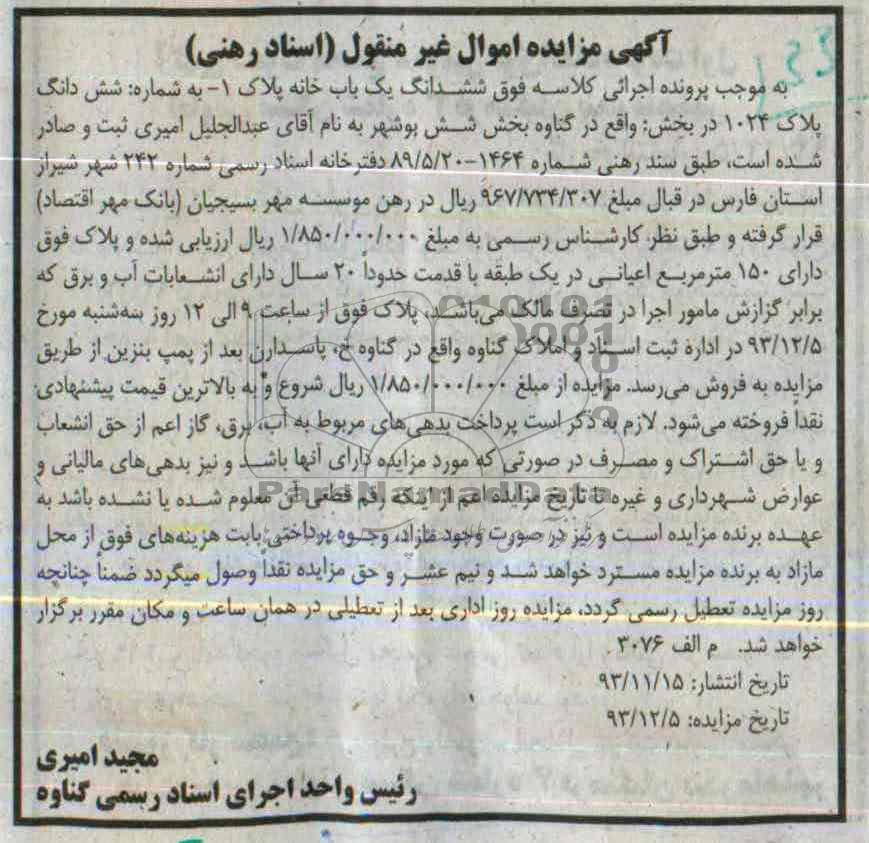 آگهی مزایده اموال غیر منقول (اسناد رهنی)
به موجب پرونده اجرائی کلاسه فوق ششدانگ یک باب خانه پلاک ۱- به شماره: شش دانگ
پلاک ۱۰۲۴ در بخش: واقع در گناوه بخش شش بوشهر به نام آقای عبدالجلیل امیری ثبت و صادر
شده است، طبق سند رهنی شماره ۱۴۶۴-۸۹/۵/۲۰ دفترخانه اسناد رسمی شماره ۲۴۲ شهر شیراز
استان فارس در قبال مبلغ ۹۶۷/۷۳۴/۳۰۷ ریال در رهن موسسه مهر بسیجیان (بانک مهر اقتصاد)
قرار گرفته و طبق نظر کارشناس رسمی به مبلغ ۱/۸۵۰/۰۰۰/۰۰۰ ریال ارزیابی شده و پلاک فوق
دارای ۱۵۰ مترمربع اعیانی در یک طبقه با قدمت حدوداً ۲۰ سال دارای انشعابات آب و برق که
برابر گزارش مامور اجرا در تصرف مالک می‌باشد، پلاک فوق از ساعت ۹ الی ۱۲ روز سه‌شنبه مورخ
۹۳/۱۲/۵ در اداره ثبت اسناد و املاک گناوه واقع در گناوه خ، پاسداران بعد از پمپ بنزین از طریق
مزایده به فروش می‌رسد. مزایده از مبلغ ۱/۸۵۰/۰۰۰/۰۰۰ ریال شروع و به بالاترین قیمت پیشنهادی
نقداً فروخته می‌شود. لازم به ذکر است پرداخت بدهی‌های مربوط به آب، برق، گاز اعم از حق انشعاب
و یا حق اشتراک و مصرف در صورتی که مورد مزایده دارای آنها باشد و نیز بدهی‌های مالیاتی و
عوارض شهرداری و غیره تا تاریخ مزایده اعم از اینکه رقم قطعی آن معلوم شده یا نشده باشد به
عهده برنده مزایده است و نیز در صورت وجود مازاد، وجوه پرداختی بابت هزینه‌های فوق از محل
مازاد به برنده مزایده مسترد خواهد شد و نیم عشر و حق مزایده نقداً وصول میگردد ضمناً چنانچه
روز مزایده تعطیل رسمی گردد، مزایده روز اداری بعد از تعطیلی در همان ساعت و مکان مقرر برگزار
خواهد شد. م الف ۳۰۷۶
تاریخ انتشار: ۹۳/۱۱/۱۵
تاریخ مزایده: ۹۳/۱۲/۵
مجید امیری
رئیس واحد اجرای اسناد رسمی گناوه
ParsNamadData